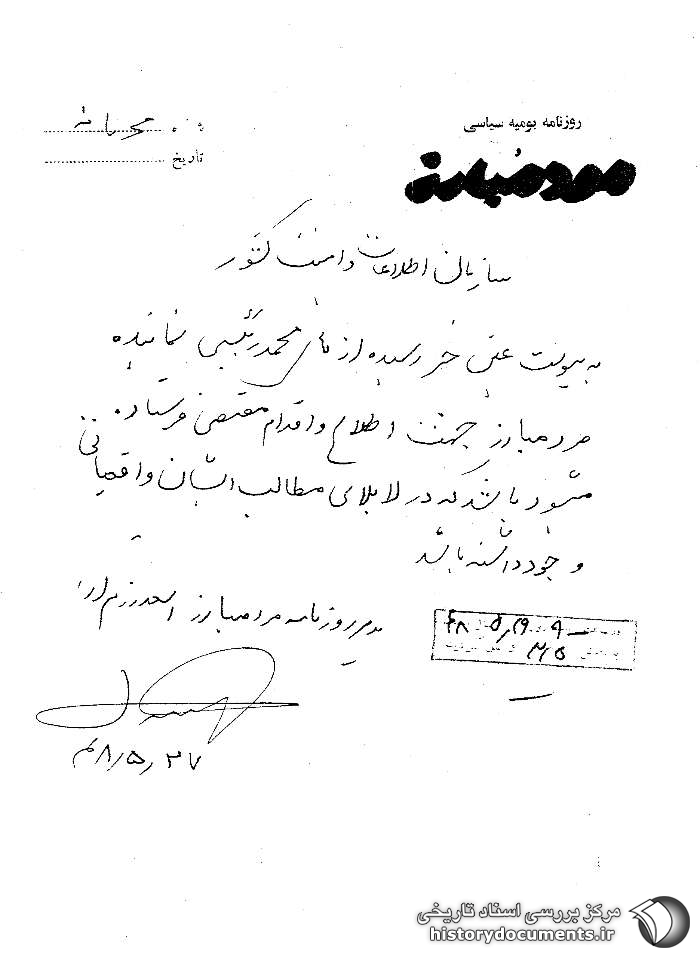 روزنامه یومیه سیاسی
مرد مبارز
محرمانه
تاریخ
سازمان اطلاعات و امنیت کشور
به پیوست عین خبر رسیده از محمد رئیسی نماینده
مرد مبارز جهت اطلاع و اقدام مقتضی فرستاده
میشود باشد که در لابلای مطالب ایشان واقعیاتی
وجود داشته باشد
مدیر روزنامه مرد مبارز اسعد رزم آرا
۴۸/۵/۲۷
۴۸/۵/۲۹
مرکز بررسی اسناد تاریخی
historydocuments.ir